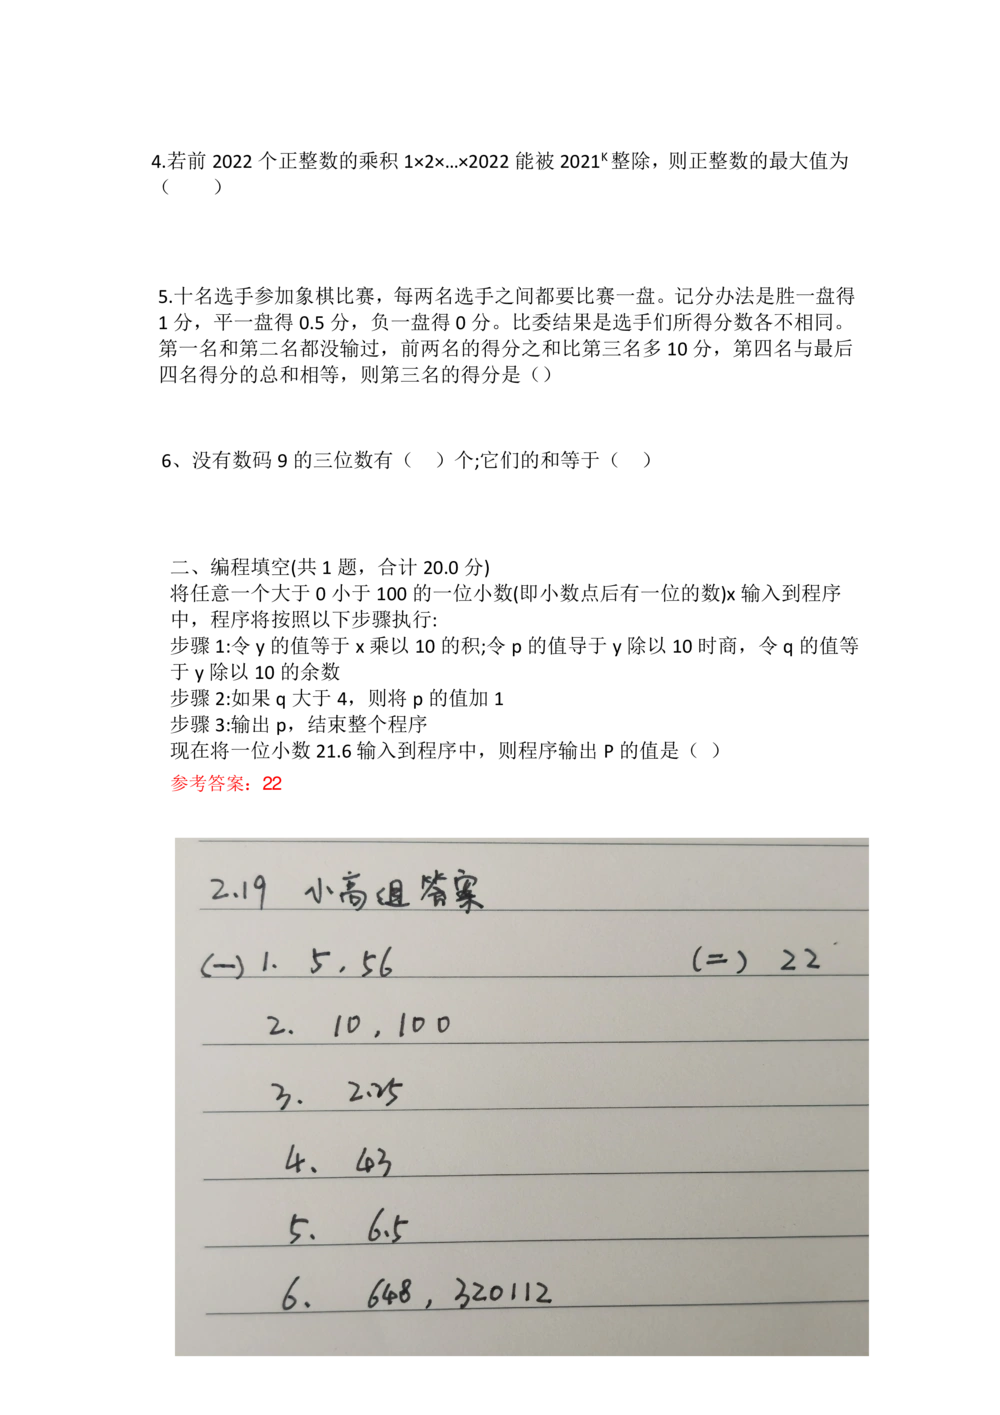 4.若前 2022 个正整数的乘积 1×2×…×2022 能被 2021ᴷ 整除，则正整数的最大值为
（　　）
5.十名选手参加象棋比赛，每两名选手之间都要比赛一盘。记分办法是胜一盘得
1 分，平一盘得 0.5 分，负一盘得 0 分。比委结果是选手们所得分数各不相同。
第一名和第二名都没输过，前两名的得分之和比第三名多 10 分，第四名与最后
四名得分的总和相等，则第三名的得分是（）
6、没有数码 9 的三位数有（　）个;它们的和等于（　）
二、编程填空(共 1 题，合计 20.0 分)
将任意一个大于 0 小于 100 的一位小数(即小数点后有一位的数)x 输入到程序
中，程序将按照以下步骤执行:
步骤 1:令 y 的值等于 x 乘以 10 的积;令 p 的值导于 y 除以 10 时商，令 q 的值等
于 y 除以 10 的余数
步骤 2:如果 q 大于 4，则将 p 的值加 1
步骤 3:输出 p，结束整个程序
现在将一位小数 21.6 输入到程序中，则程序输出 P 的值是（ ）
参考答案：22
2.19 小高组答案
(一) 1. 5，56 (二) 22
2. 10，100
3. 2.25
4. 43
5. 6.5
6. 648，320112